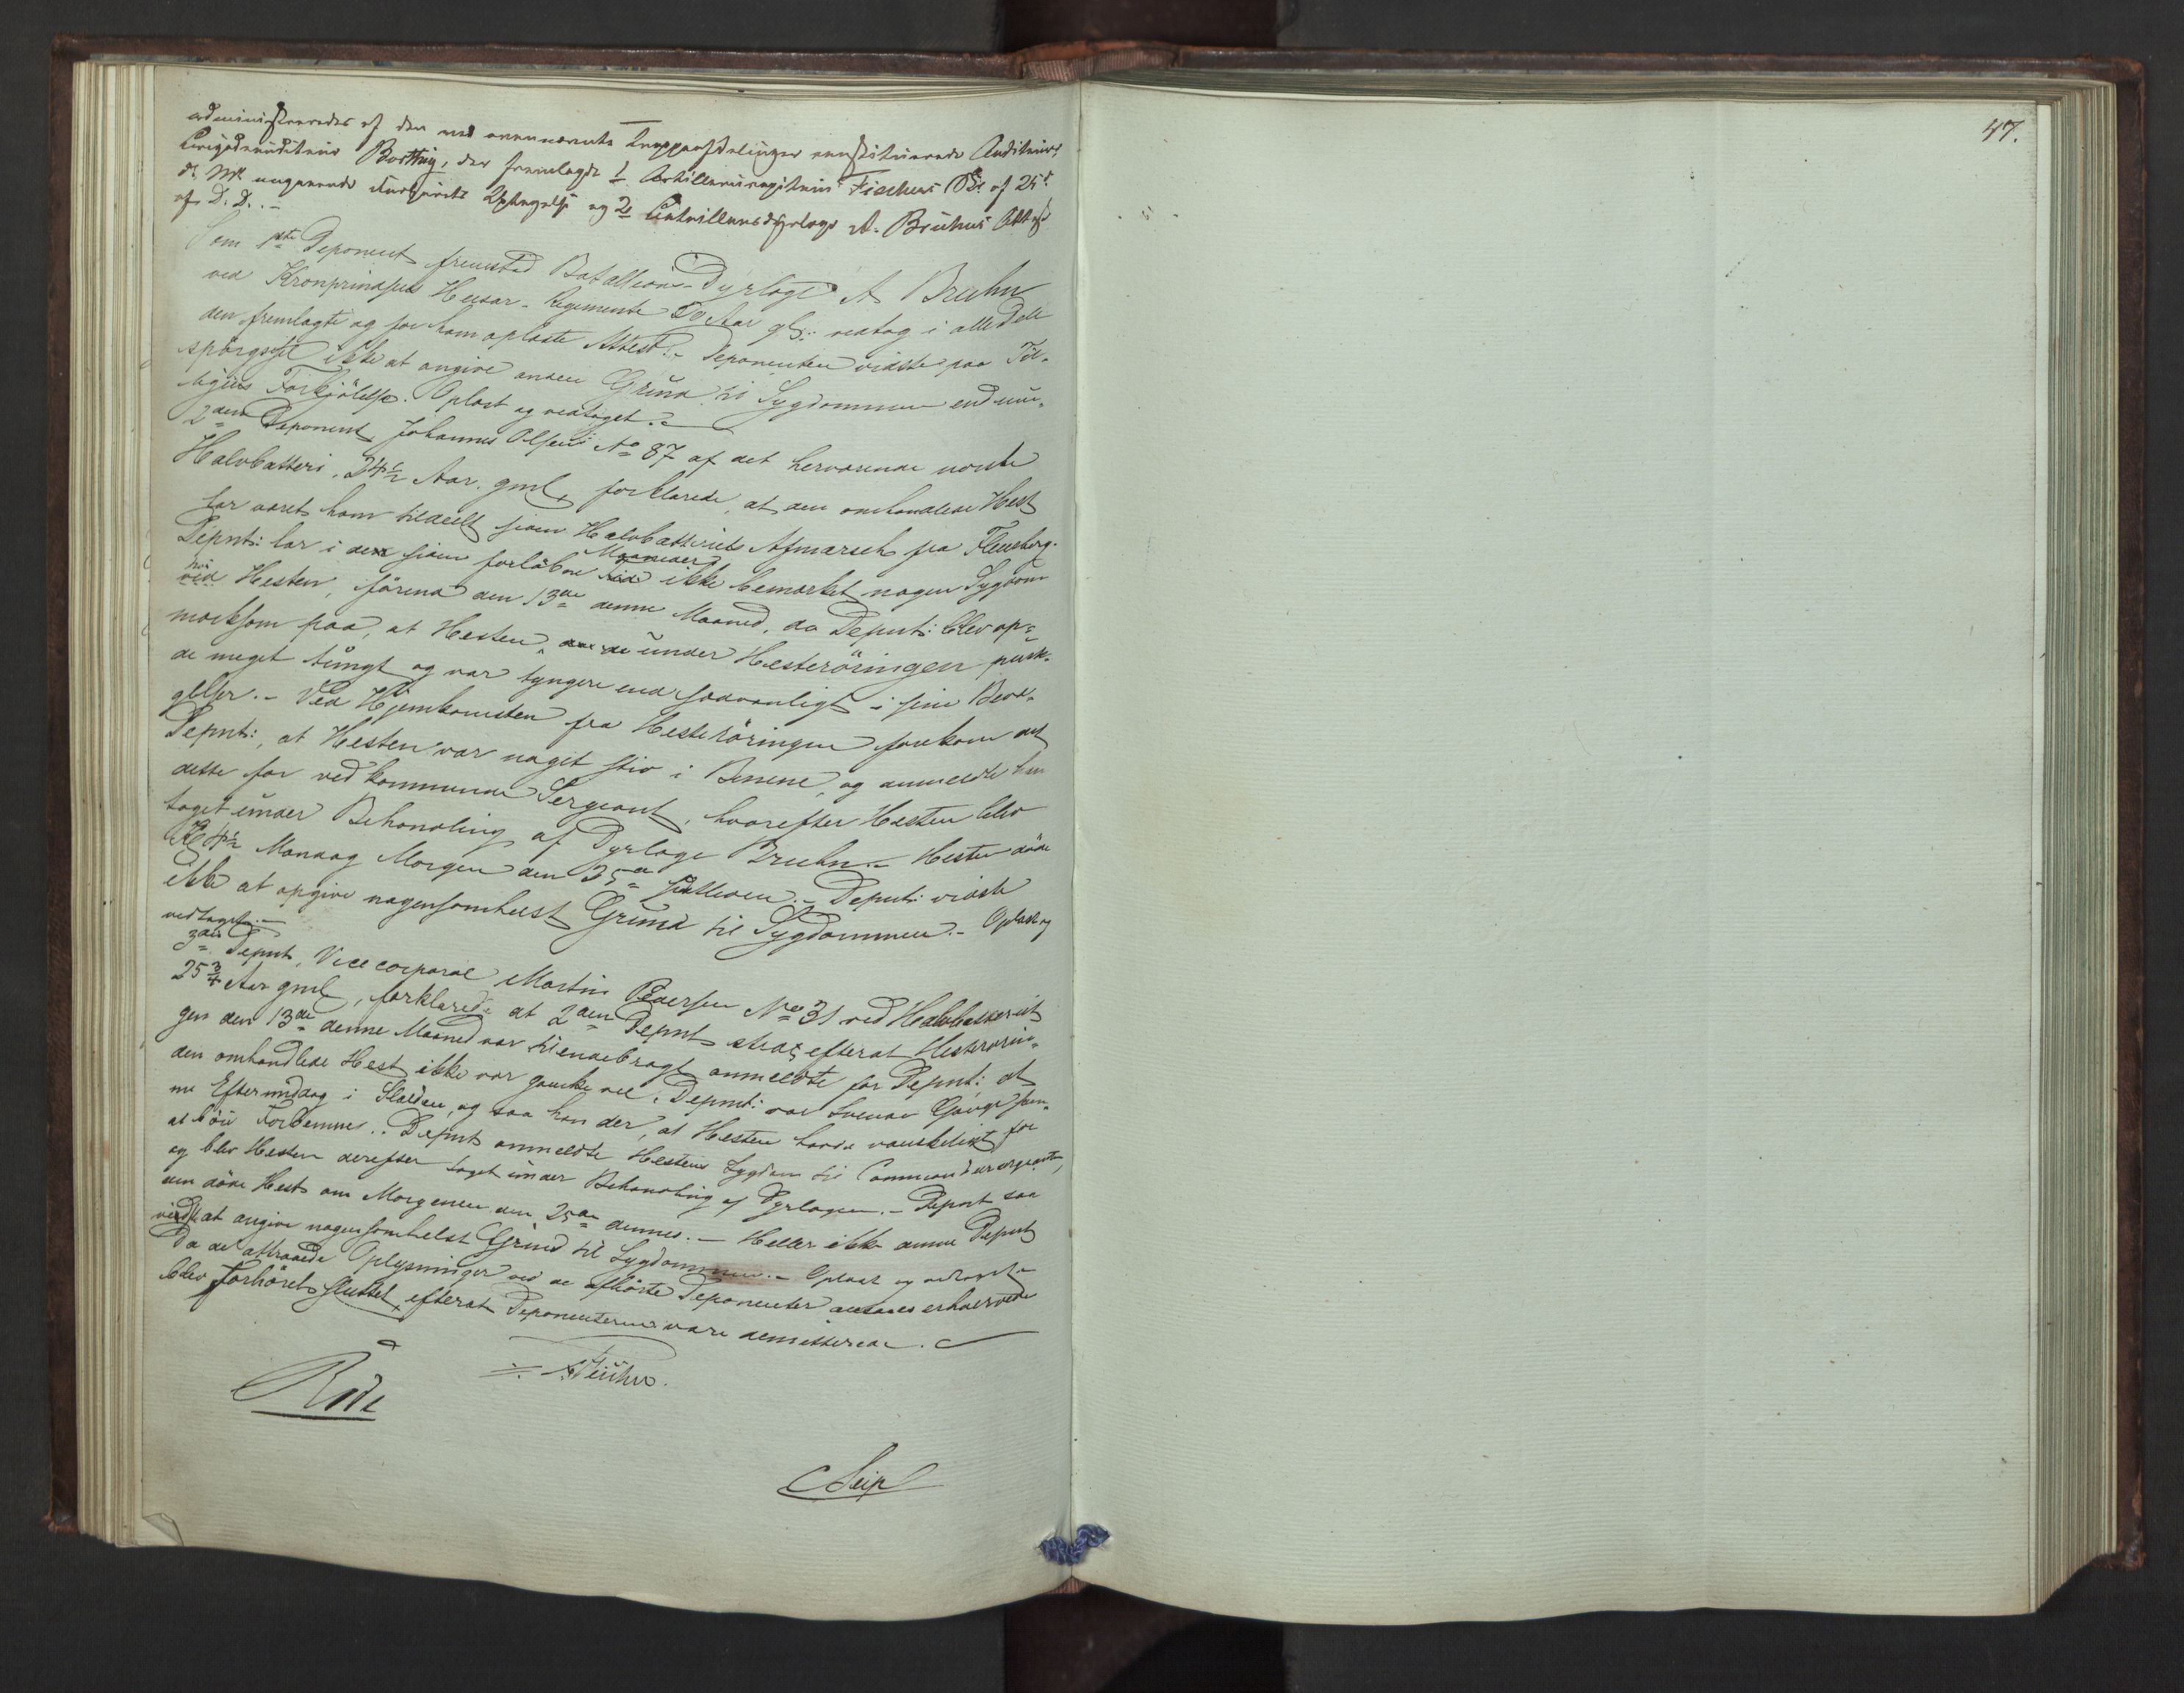 administreredes af den ved ovennævnte Troppeafdelinger constituerede Auditeur,
Brigadeauditeur Borthig, der fremlagde 1. Artillericapitain Fischers Skr. af 25d.
d. M. angaaende Forhørets Optagelse og 2. Batallionsdyrlæge A. Bruhns Attest
af D. D. -
Som 1ste Deponent fremstod Batallions-Dyrlæge A. Bruhn
ved Kronprindsens Husar-Regimente 50 Aar gl: vedtog i alle Dele
den fremlagte og for ham oplæste Attest. - Deponenten vidste paa Til-
spørgsel ikke at angive anden Grund til Sygdommen end mu-
ligens Forkjølelse. Oplæst og vedtaget. -
2den Deponent Johannes Olsen No 87 af det herværende norske
Halvbatteri, 24½ Aar gml, forklarede, at den omhandlede Hest
har været ham tildeelt siden Halvbatteriets Afmarsch fra Flensborg.
Depnt: har i den siden forløbne Maaneder ikke bemærket nogen Sygdom
hos Hesten, førend den 13de denne Maaned, da Depnt: blev op-
mærksom paa, at Hesten under Hesterøringen pust-
de meget tungt og var tyngere end sædvanligt i sine Bevæ-
gelser. - Ved Hjemkomsten fra Hesterøringen forekom det
Depnt:, at Hesten var noget stiv i Benene, og anmeldte han
dette for vedkommende Sergeant, hvorefter Hesten blev
taget under Behandling af Dyrlæge Bruhn. - Hesten døde
Kl 4½ Mandag Morgen den 25de . - Depnt: vidste
ikke at opgive nogensomhelst Grund til Sygdommen. - Oplæst og
vedtaget. -
3die Depnt, Vicecorporal Martin Pedersen No 31 ved Halvbatteriet
25¾ Aar gml, forklarede at 2den Depnt strax efterat Hesterørin-
gen den 13de denne Maaned var tilendebragt anmeldte for Depnt: at
den omhandlede Hest ikke var ganske vel. Depnt: var Gange sam-
me Eftermiddag i Stalden, og saa han der, at Hesten havde vanskeligt for
at bøie Forbenene. Depnt anmeldte Hestens Sygdom til Commandeersergeanten,
og blev Hesten derefter taget under Behandling af Dyrlægen. - Depnt saa
den døde Hest om Morgenen den 25de dennes. - Heller ikke denne Depnt
vidste at angive nogensomhelst Grund til Sygdommen. - Oplæst og vedtaget -
Da de attraaede Oplysninger ved de afhørte Deponenter ansaaes erhvervede
blev Forhøret sluttet, efterat Deponenterne vare demitterede.
Rode
Seip
47.